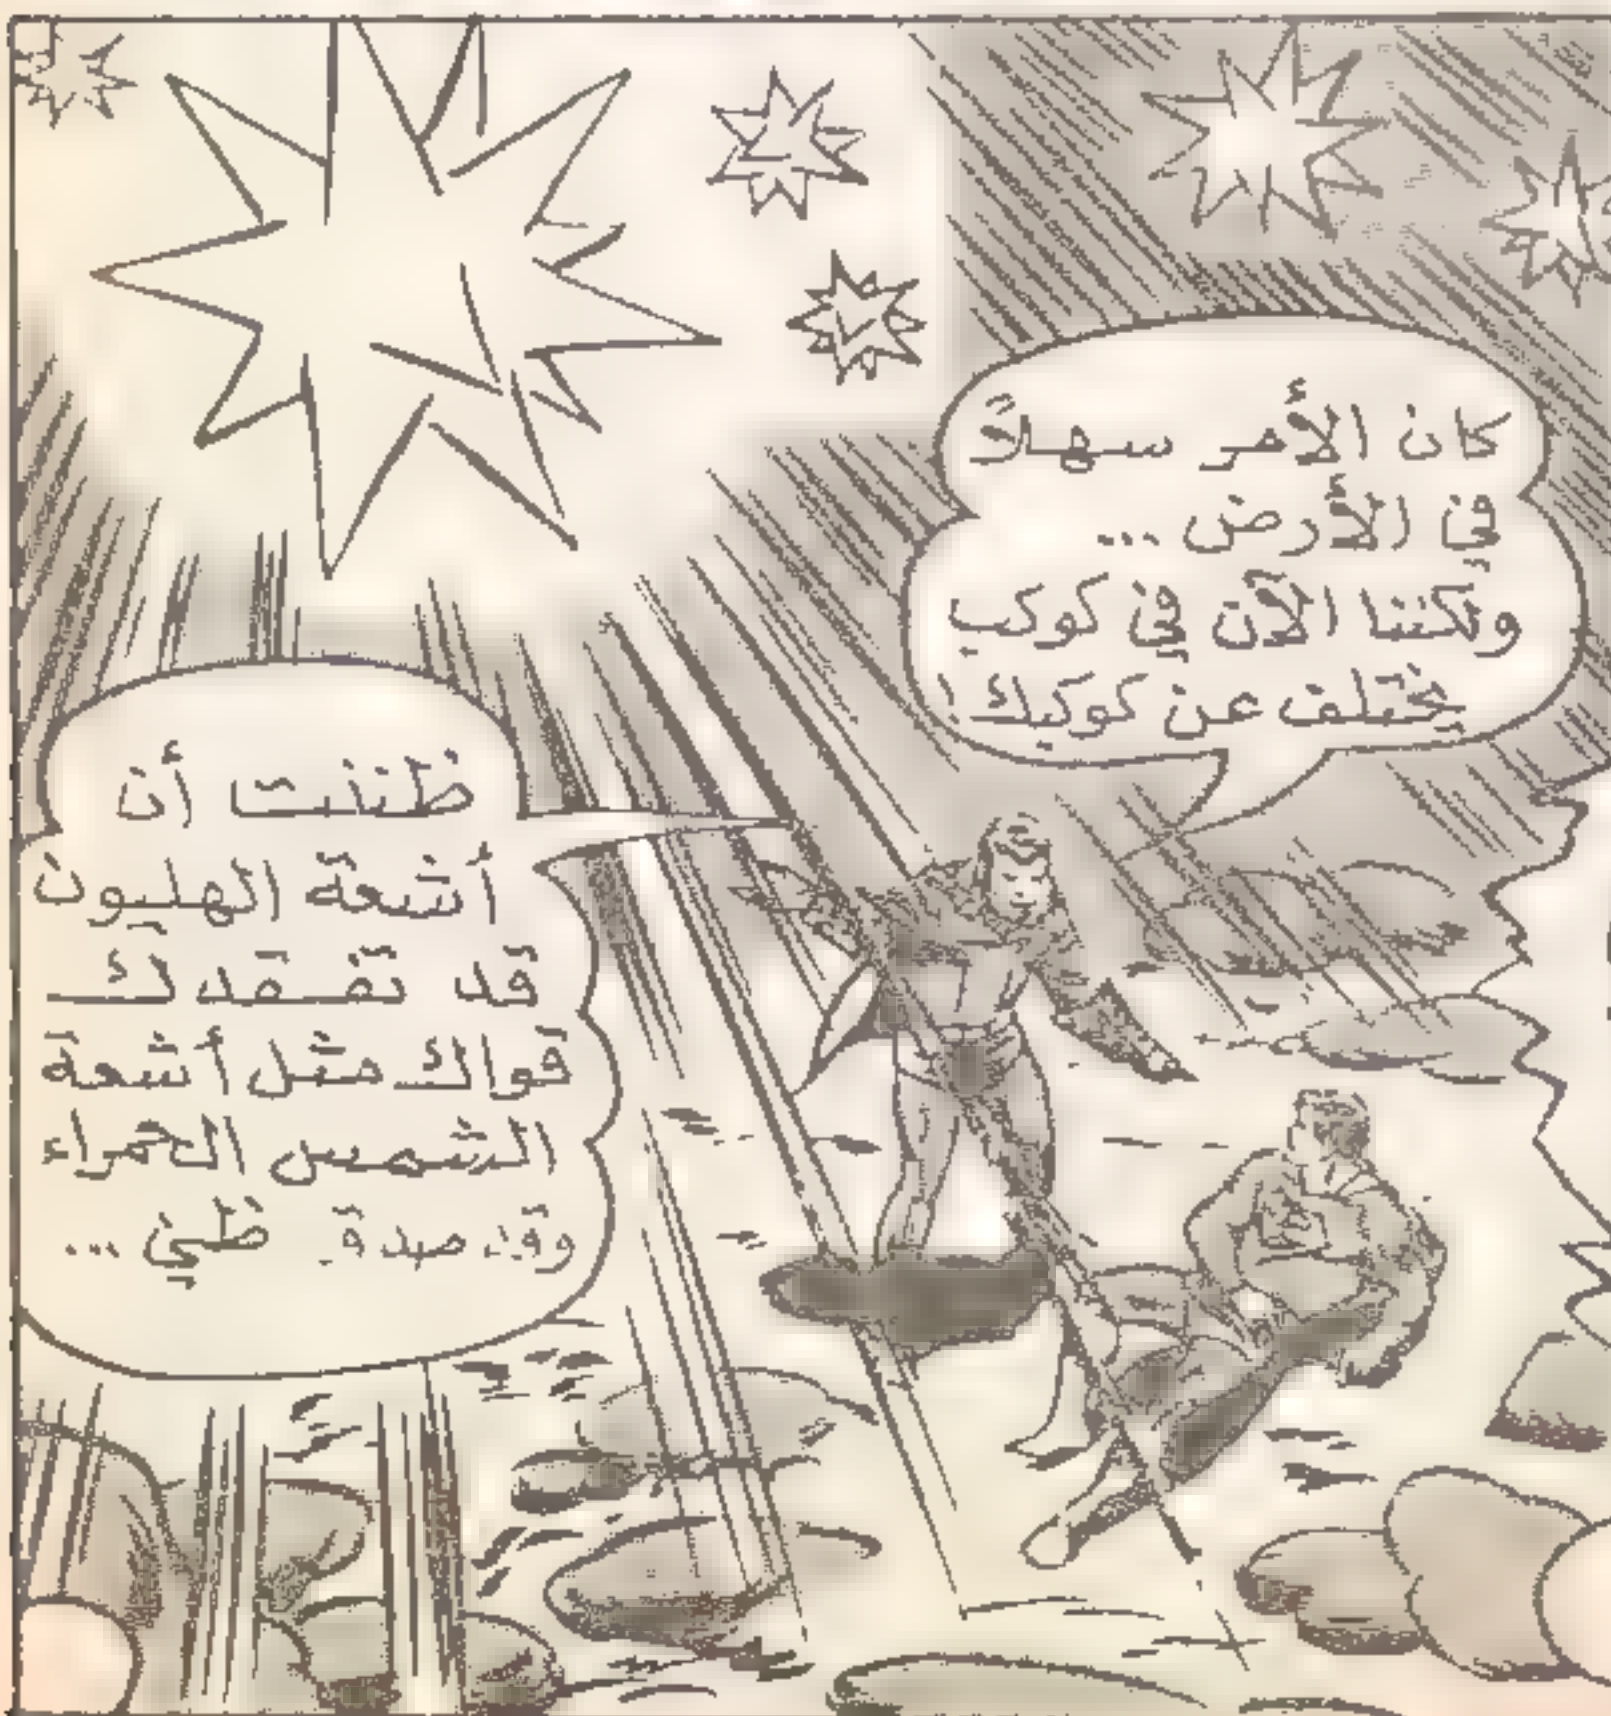 كان الأمر سهلاً
في الأرض ...
ولكننا الآن في كوكب
يختلف عن كوكبك!
ظننت أن
أشعة الهليون
قد تفقدك
قواك مثل أشعة
الشمس الحمراء
وقد صدق ظني ...